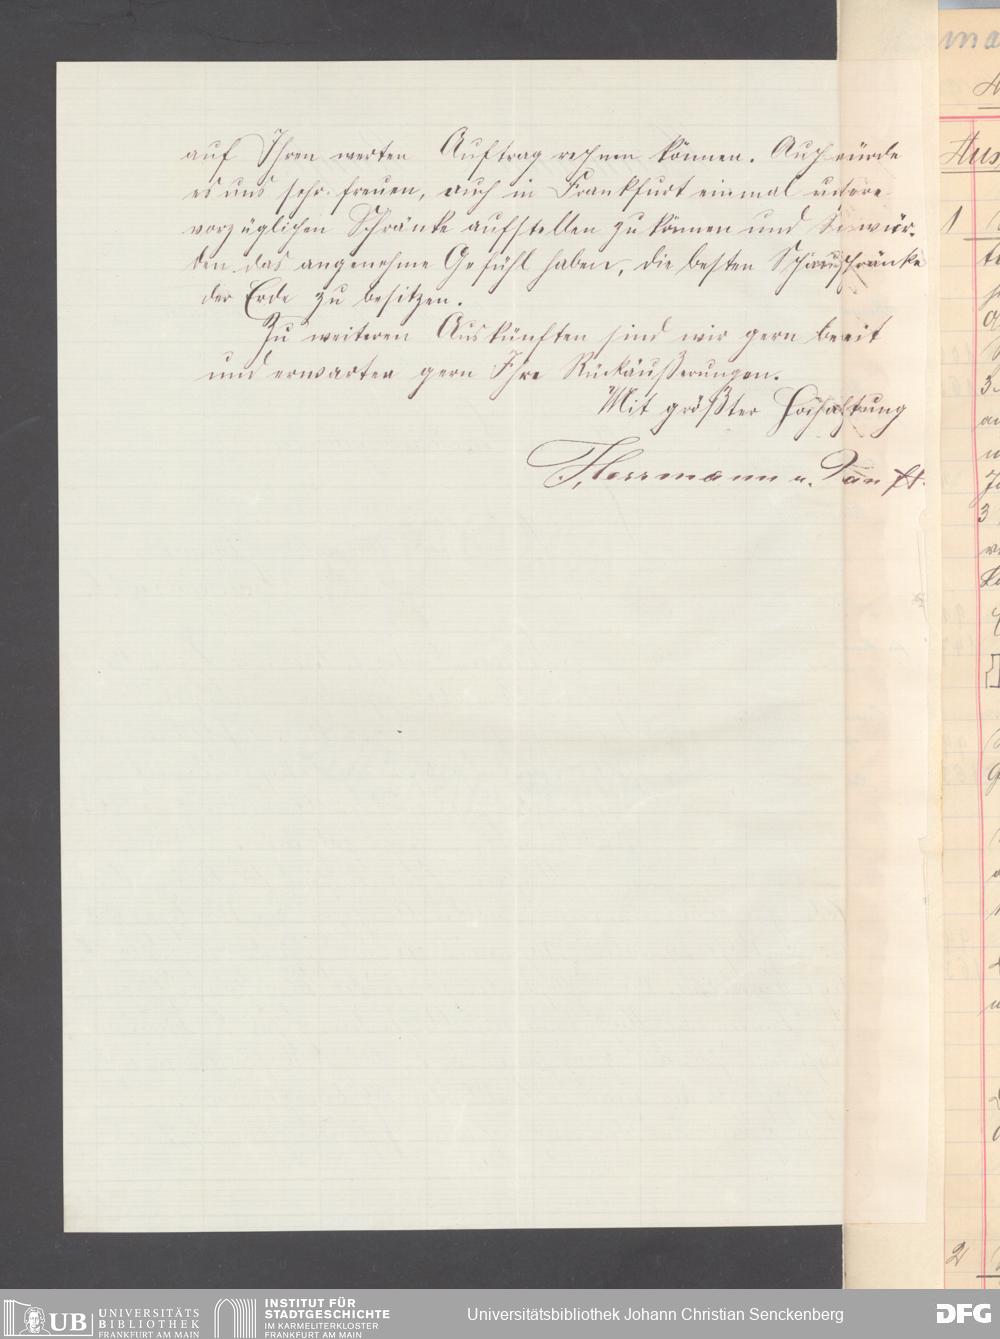 auf Ihren werten Auftrag rechnen können. Auch würde
es uns sehr freuen, auch in Frankfurt einmal unsere
vorzüglichen Schränke aufstellen zu können und Sie wür-
den das angenehme Gefühl haben, die besten Schauschränke
der Erde zu besitzen.
Zu weiteren Auskünften sind wir gern bereit
und erwarten gern Ihre Rückäußerungen.
Mit größter Hochachtung
Herrmann u.
1
3
2
UB UNIVERSITÄTS
BIBLIOTHEK
FRANKFURT AM MAIN
INSTITUT FÜR
STADTGESCHICHTE
IM KARMELITERKLOSTER
FRANKFURT AM MAIN
Universitätsbibliothek Johann Christian Senckenberg
DFG